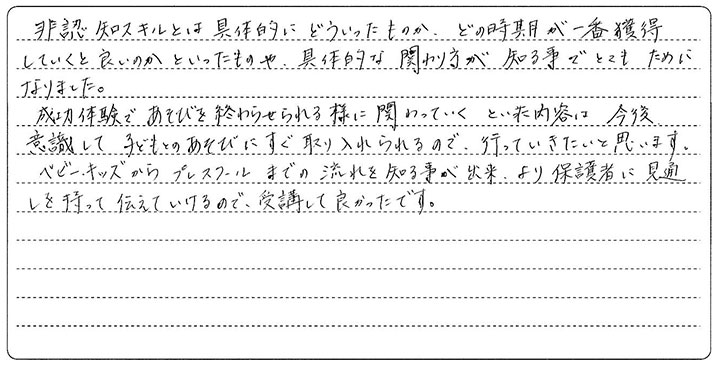 非認知スキルとは具体的にどういったものか、どの時期が一番獲得
していくと良いのかといったものや、具体的な関わり方が知る事でとてもために
なりました。
成功体験であそびを終わらせられる様に関わっていくといった内容は今後
意識して子どもとのあそびにすぐ取り入れられるので、行っていきたいと思います。
ベビー・キッズからプレスクールまでの流れを知る事が出来、より保護者に見通
しを持って伝えていけるので、受講して良かったです。